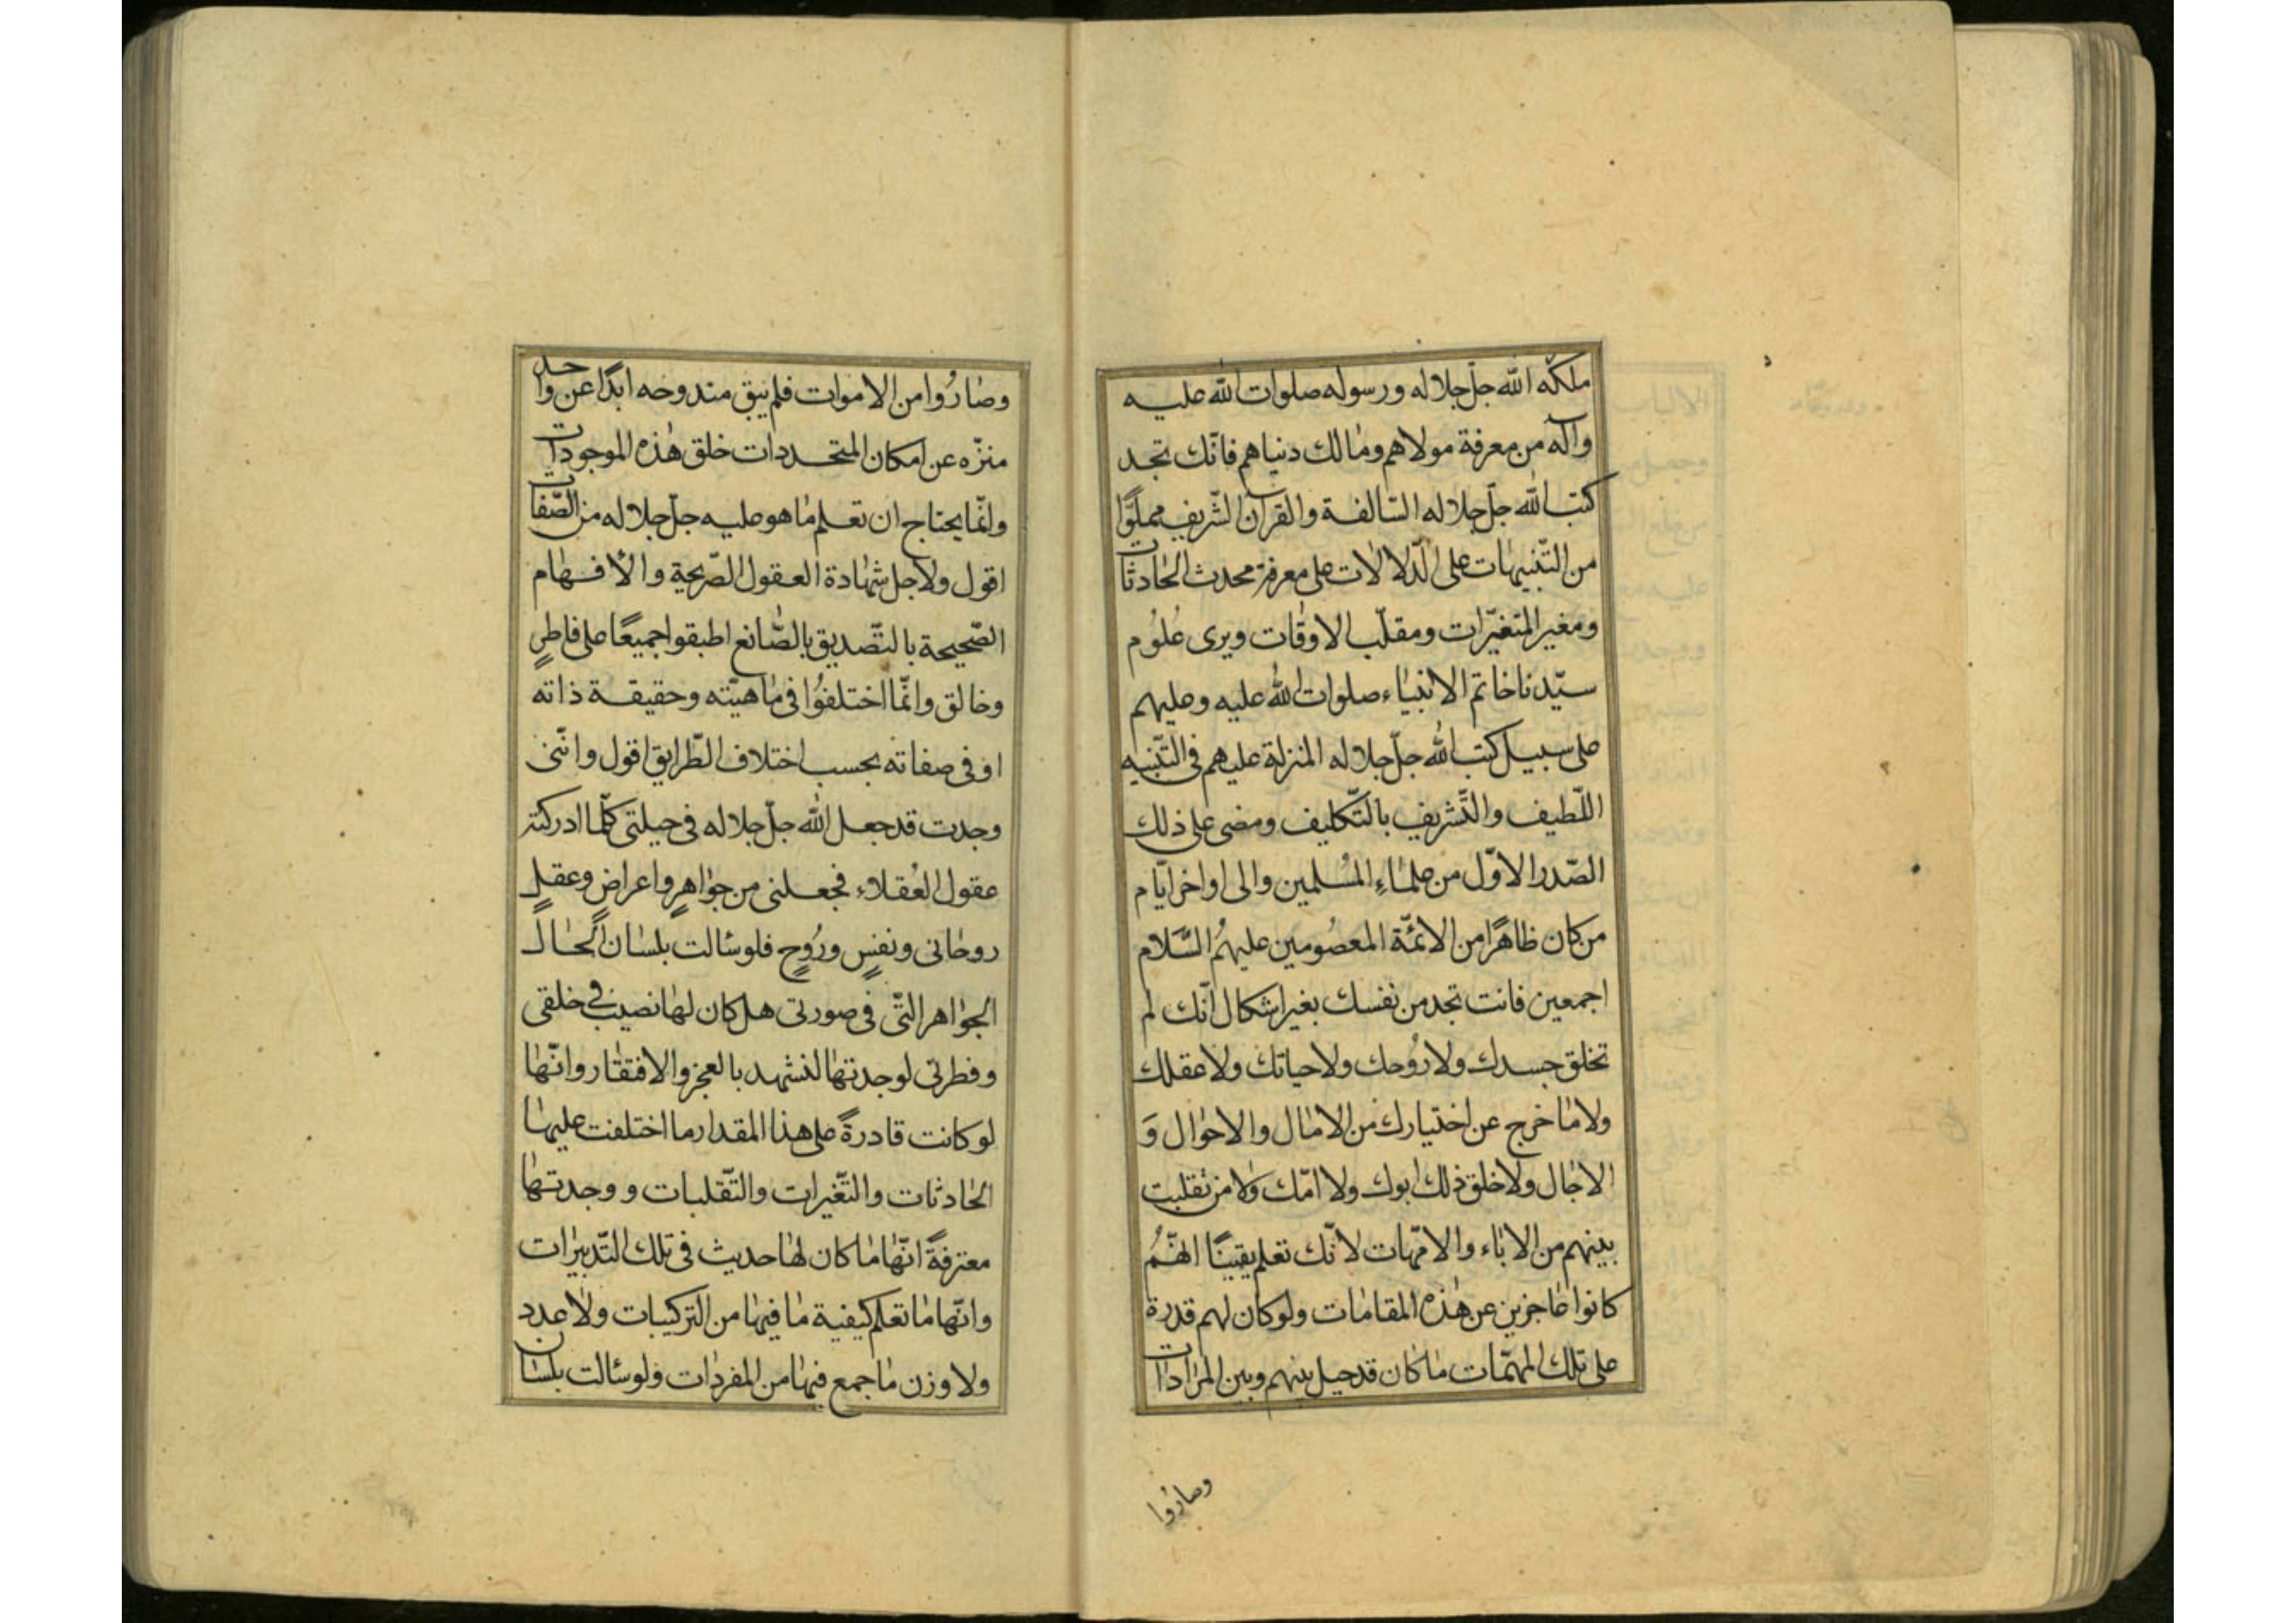 ملكه الله جلّ جلاله ورسوله صلوات الله عليه
وآله من معرفة مولاهم ومالك دنياهم فانّك تجد
كتب الله جلّ جلاله السّالفة والقرآن الشّريف مملوًّا
من التّنبيهات على الدّلالات على معرفة محدث الحادثات
ومغير المتغيّرات ومقلّب الاوقات ويرى عُلُوم
سيّدنا خاتم الانبياء صلوات الله عليه وعليهم
على سبيل كتب الله جلّ جلاله المنزلة عليهم فى التّنبيه
اللّطيف والتّشريف بالتّكليف ومضى على ذلك
الصّدر الاوّل من علماءِ المُسلمين والى اواخر ايّام
من كان ظاهرًا من الائمّة المعصُومين عليهمُ السَّلام
اجمعين فانت تجد من نفسك بغير اشكال انّك لم
تخلق جسدك ولا رُوحك ولا حياتك ولا عقلك
ولا ما خرج عن اختيارك من الامال والاحوال وَ
الاجال ولا خلق ذلك ابوك ولا امّك ولا من تقلبت
بينهم من الاباء والامّهات لانّك تعلم يقينًا انّهُمُ
كانوا عاجزين عن هذه المقامات ولو كان لهم قدرة
على تلك المهمّات ما كان قد حيل بينهم وبين المرادات
وصارُوا
وصارُوا من الاموات فلم يبق مندوحه ابدًا عن واحد
منزّه عن امكان المتجددات خلق هذه الموجودات
وانّما يحتاج ان تعلم ما هو عليه جلّ جلاله من الصّفات
اقول ولاجل شهادة العقول الصّريحة والافهام
الصّحيحة بالتّصديق بالصّانع اطبقوا جميعًا على فاطرٍ
وخالق وانّما اختلفوُا فى ماهيّته وحقيقة ذاته
او فى صفاته بحسب اختلاف الطّرايق اقول وانّنى
وجدت قد جعل الله جلّ جلاله فى جبلتى كلّما ادركته
عقول العُقلاء فجعلنى من جواهرٍ واعراضٍ وعقلٍ
روحانى ونفسٍ ورُوحٍ فلو سالت بلسان الحال
الجواهر الّتى فى صورتى هل كان لها نصيب فى خلقى
وفطرتى لوجدتها لتشهد بالعجز والافتقار وانّها
لو كانت قادرةً على هذا المقدار ما اختلفت عليها
الحادثات والتّغيرات والتّقلبات ووجدتها
معترفةً انّها ما كان لها حديث فى تلك التّدبيرات
وانّها ما تعلم كيفية ما فيها من التركيبات ولا عدد
ولا وزن ما جمع فيها من المفردات ولو سالت بلسان